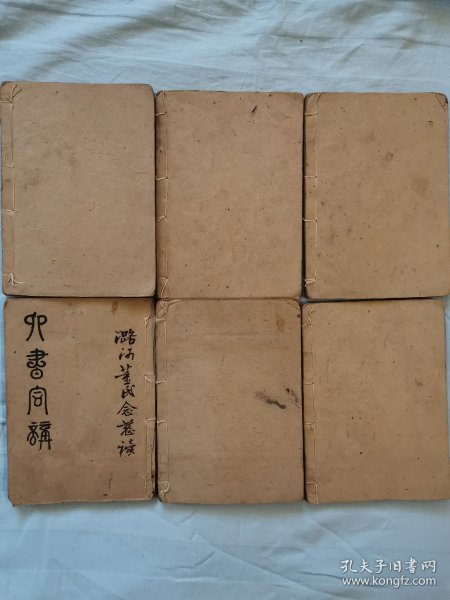 潞河董氏念慈讀
四書合講
孔夫子旧书网
www.kongfz.com